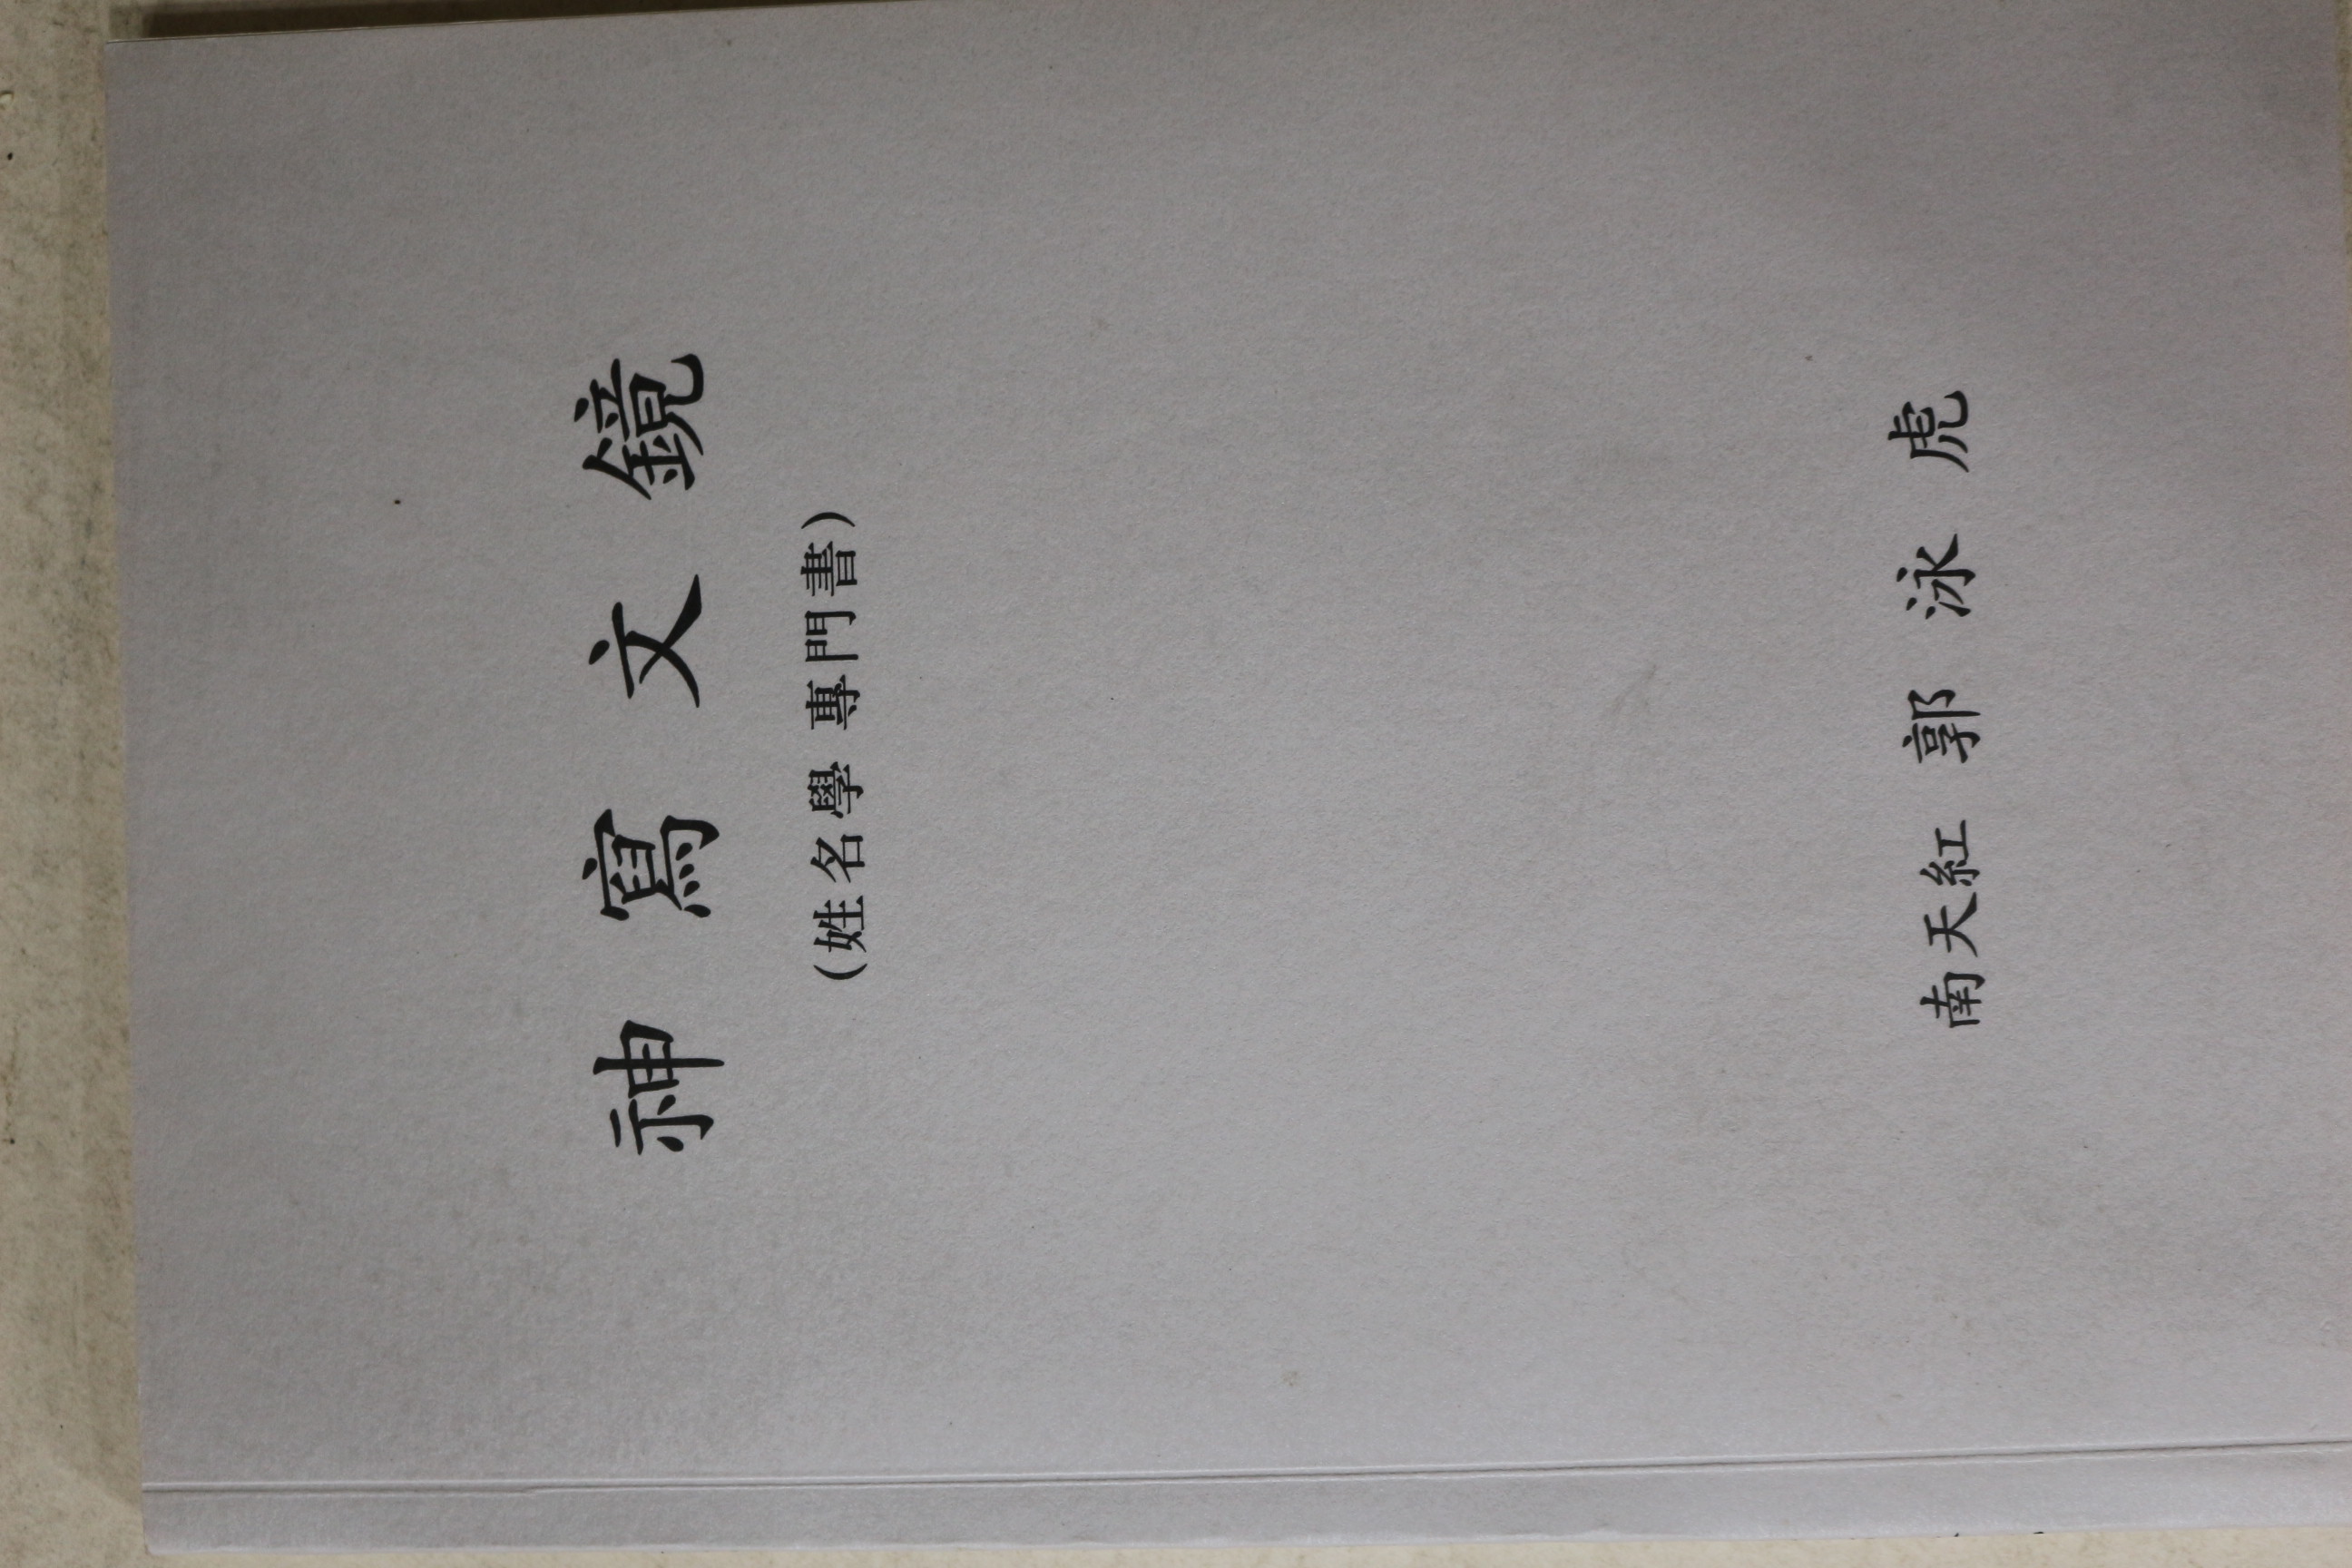 神寫文鏡
(姓名學 專門書)
南天紅 郭泳虎